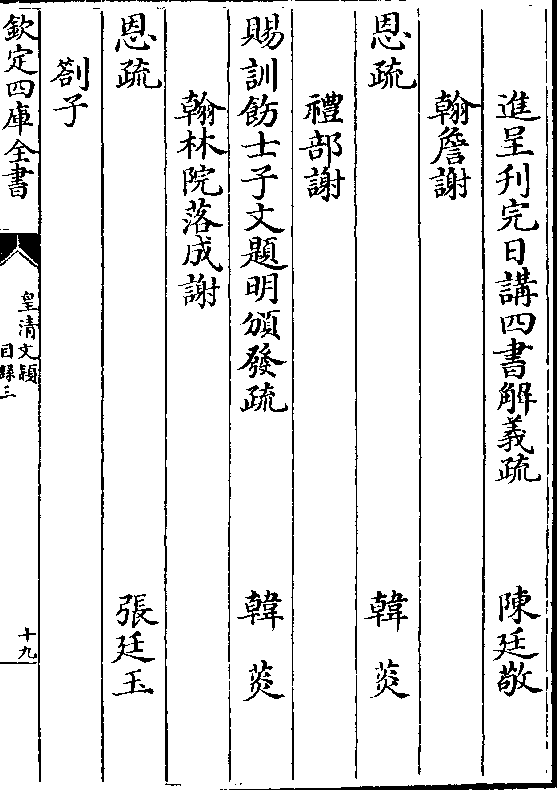 進呈刋完日講四書解義疏 陳廷敬
翰詹謝
恩疏 韓菼
禮部謝
賜訓飭士子文題明頒發疏 韓菼
翰林院落成謝
恩疏 張廷玉
劄子
欽定四庫全書
皇清文穎
目録三
十九